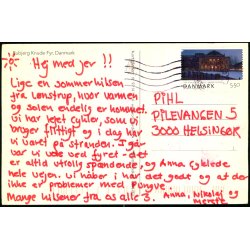 Rubjerg Knude Fyr, Danmark
Hej med jer !!
Lige en sommerhilsen
fra Lønstrup, hvor varmen
og solen endelig er kommet.
Vi har lejet cykler, som vi
bruger flittigt og i dag har
vi været på stranden. I går
var vi ude ved fyret - det
er altid utrolig spændende, og Anna cyklede
hele vejen. Vi håber i har det godt og at der
ikke er problemer med
Mange hilsener fra os alle 3. Anna, Nikolaj og
Merete
DANMARK
550
PIHL
PILEVANGEN 5
3000 HELSINGØR